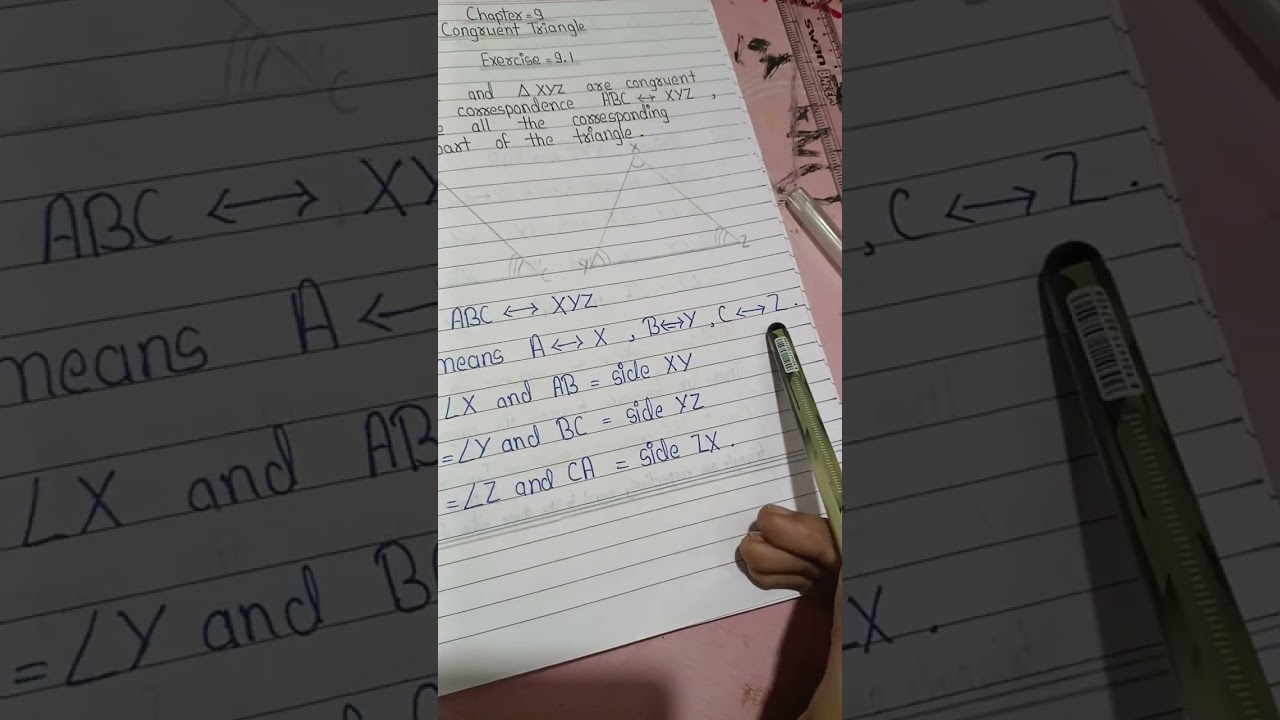 Chapter = 9
Congruent Triangle
Exercise = 9.1
and Δ XYZ are congruent
correspondence ABC ↔ XYZ ,
all the corresponding
part of the triangle.
X
Y
Z
C
ABC ↔ XYZ
means A ↔ X , B ↔ Y , C ↔ Z .
∠X and AB = side XY
= ∠Y and BC = side YZ
= ∠Z and CA = side ZX .
swan